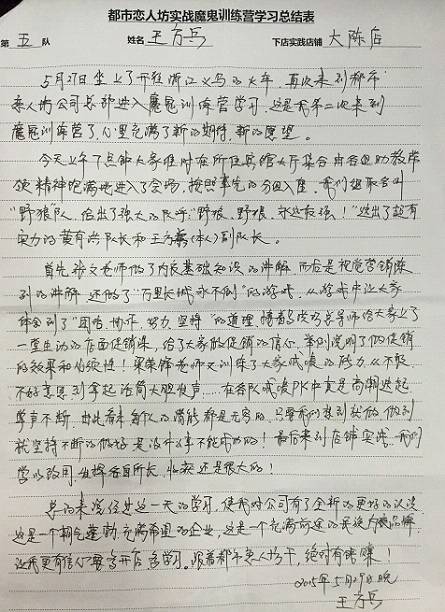 都市恋人坊实战魔鬼训练营学习总结表
第 五 队 姓名 王方兵 下店实践店铺 大陈店
5月27日坐上了开往浙江义乌的火车，再次来到都市
恋人坊公司总部进入魔鬼训练营学习，这是我第二次来到
魔鬼训练营了，心里充满了新的期待，新的愿望。
今天上午7点钟大家准时在所住宾馆大厅集合由各组助教带
领精神饱满地进入了会场，按照事先的分组入座，我们组取名叫
“野狼”队，给出了强大的队呼：“野狼，野狼，永远最强！”选出了超有
实力的黄有兴队长和王方兵(本人)副队长。
首先张文老师做了内衣基础知识的讲解，而后是视觉营销陈
列的讲解，还做了“万里长城永不倒”的游戏，从游戏中让大家
体会到了“团结、协作、努力、坚持”的道理，接着 导师给大家上了
一堂生动的店面促销课，给了大家做促销的信心，举例说明了做促销
的效果和必须性！ 老师又训练了大家成 的能力，从不敢
不好意思到拿起话筒大胆发声……在各队成 PK中真是高潮迭起
掌声不断，由此看来每队的潜能都是无穷的，只要我们想到就做，做到
就坚持不断的做好是没什么事不能成功的！最后来到店铺实践，我们
学以致用，发挥各自所长，收获还是很大的！
总的来说，经过这一天的学习，使我对公司有了全新的更好的认识
这是一个朝气蓬勃，充满希望的企业，这是一个充满前途的 品牌
让我更有信心要多开店，多学习。跟着都市恋人坊干，绝对有钱赚！
2015年5月29日晚
王方兵